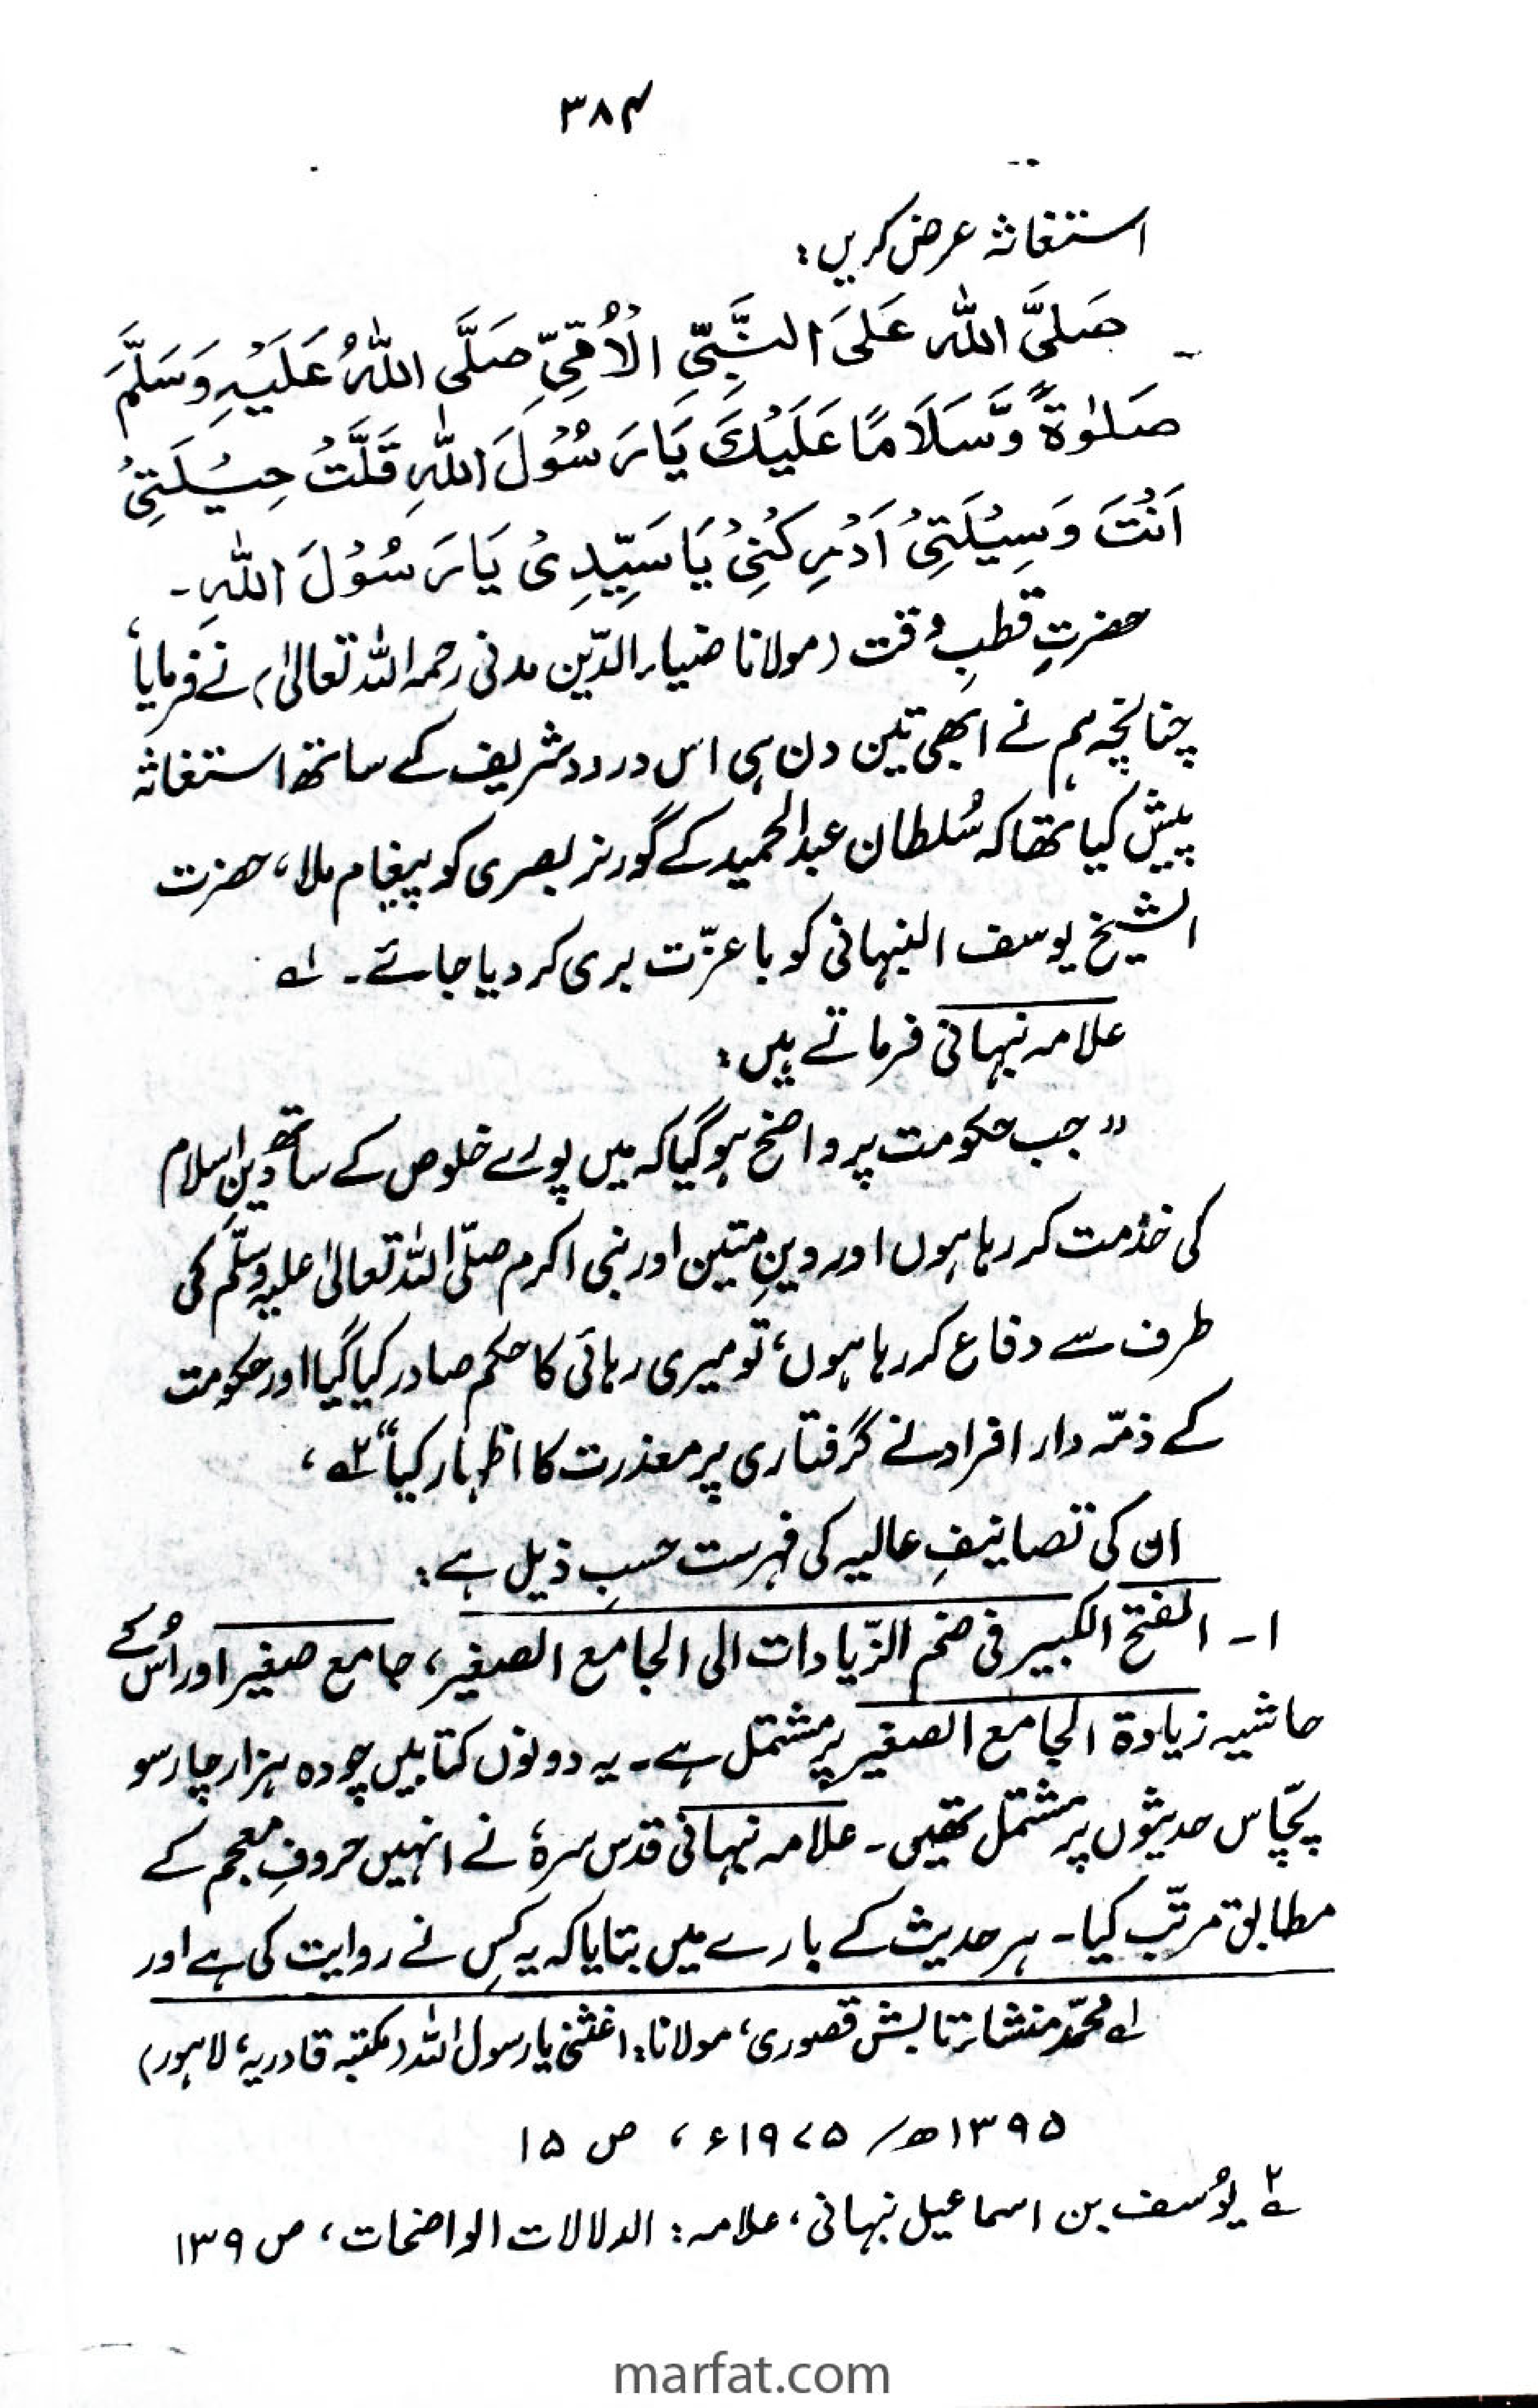 ۳۸۴
استغاثہ عرض کریں :
صَلَّی اللہ عَلَی النَّبِیِّ الْاُمِّیِّ صَلَّی اللہُ عَلَیْہِ وَسَلَّمَ
صَلٰوۃً وَّسَلَامًا عَلَیْكَ یَا رَسُوْلَ اللہِ قَلَّتْ حِیْلَتِیْ
اَنْتَ وَسِیْلَتِیْ اَدْرِکْنِیْ یَا سَیِّدِیْ یَا رَسُوْلَ اللہِ ۔
حضرتِ قطبِ وقت (مولانا ضیاء الدّین مدنی رحمہ اللہ تعالیٰ) نے فرمایا،
چنانچہ ہم نے ابھی تین دن ہی اس درود شریف کے ساتھ استغاثہ
پیش کیا تھا کہ سُلطان عبدالحمید کے گورنر بصری کو پیغام ملا، حضرت
الشیخ یوسف النبہانی کو با عزّت بری کر دیا جائے۔ ۱؎
علامہ نبہانی فرماتے ہیں :
” جب حکومت پر واضح ہو گیا کہ میں پورے خلوص کے ساتھ دینِ اسلام
کی خدمت کر رہا ہوں اور دینِ متین اور نبی اکرم صلّی اللہ تعالیٰ علیہ وسلّم کی
طرف سے دفاع کر رہا ہوں، تو میری رہائی کا حکم صادر کیا گیا اور حکومت
کے ذمّہ دار افراد نے گرفتاری پر معذرت کا اظہار کیا“ ۲؎ ،
ان کی تصانیفِ عالیہ کی فہرست حسبِ ذیل ہے :
۱۔ الفتح الکبیر فی ضم الزّیادات الی الجامع الصغیر، جامع صغیر اور اُس کے
حاشیہ زیادۃ الجامع الصغیر پر مشتمل ہے۔ یہ دونوں کتابیں چودہ ہزار چار سو
پچّاس حدیثوں پر مشتمل تھیں۔ علامہ نبہانی قدس سرہٗ نے انہیں حروفِ معجم کے
مطابق مرتّب کیا۔ ہر حدیث کے بارے میں بتایا کہ یہ کِس نے روایت کی ہے اور
۱؎ محمّد منشا تابش قصوری، مولانا: اغثنی یا رسول اللہ (مکتبہ قادریہ، لاہور)
۱۳۹۵ھ / ۱۹۷۵ء ، ص ۱۵
۲؎ یوُسف بن اسماعیل نبہانی، علامہ : الدلالات الواضحات، ص ۱۳۹
marfat.com